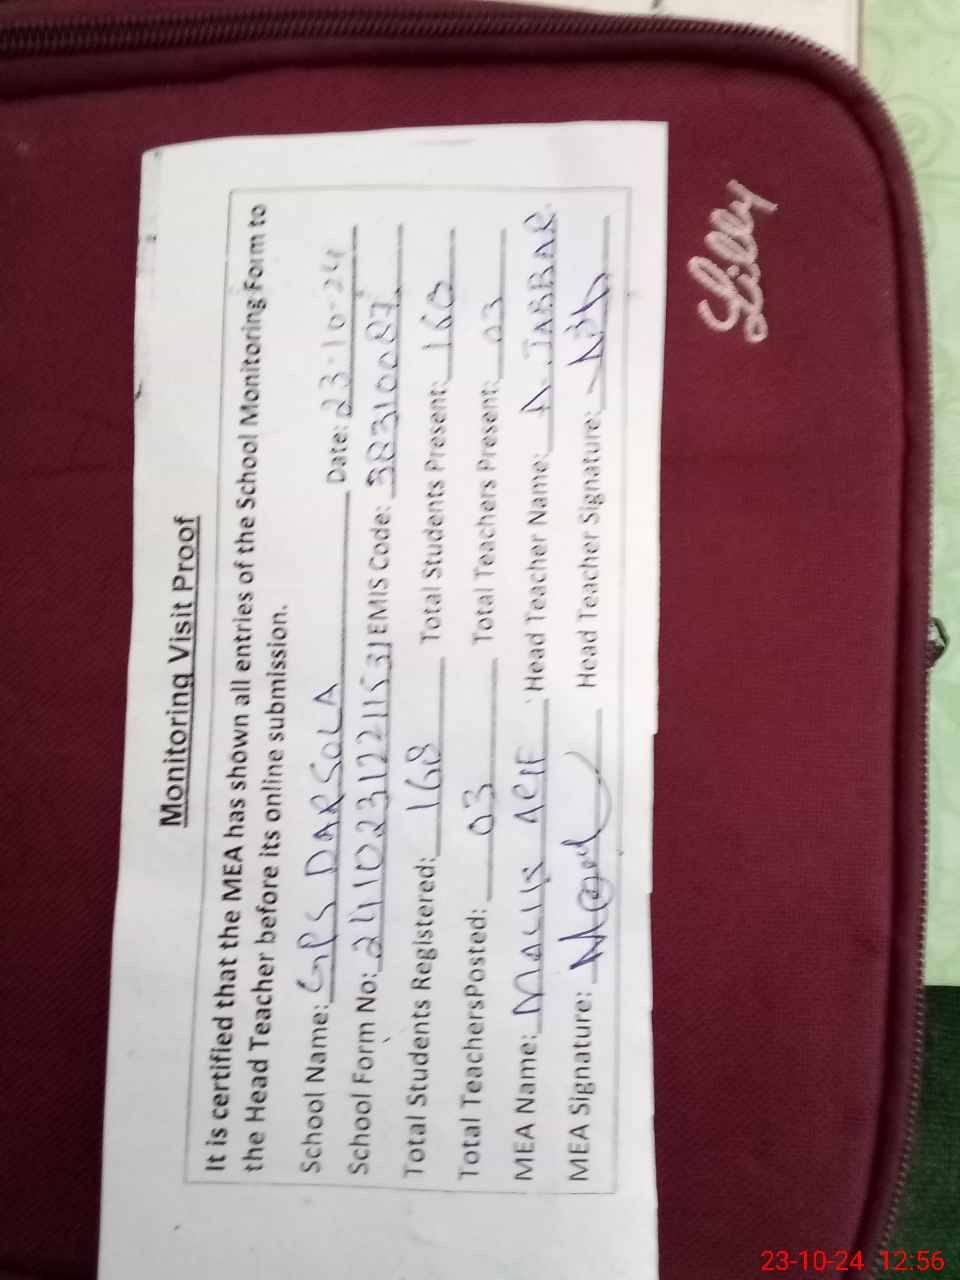 Monitoring Visit Proof
It is certified that the MEA has shown all entries of the School Monitoring Form to
the Head Teacher before its online submission.
School Name: GPS DARSOLA Date: 23-10-24
School Form No: 24102312211531 EMIS Code: 38310087
Total Students Registered: 168 Total Students Present: 160
Total TeachersPosted: 03 Total Teachers Present: 03
MEA Name: MALIK ARIF Head Teacher Name: A. JABBAR
MEA Signature: Head Teacher Signature:
Lilly
23-10-24 12:56